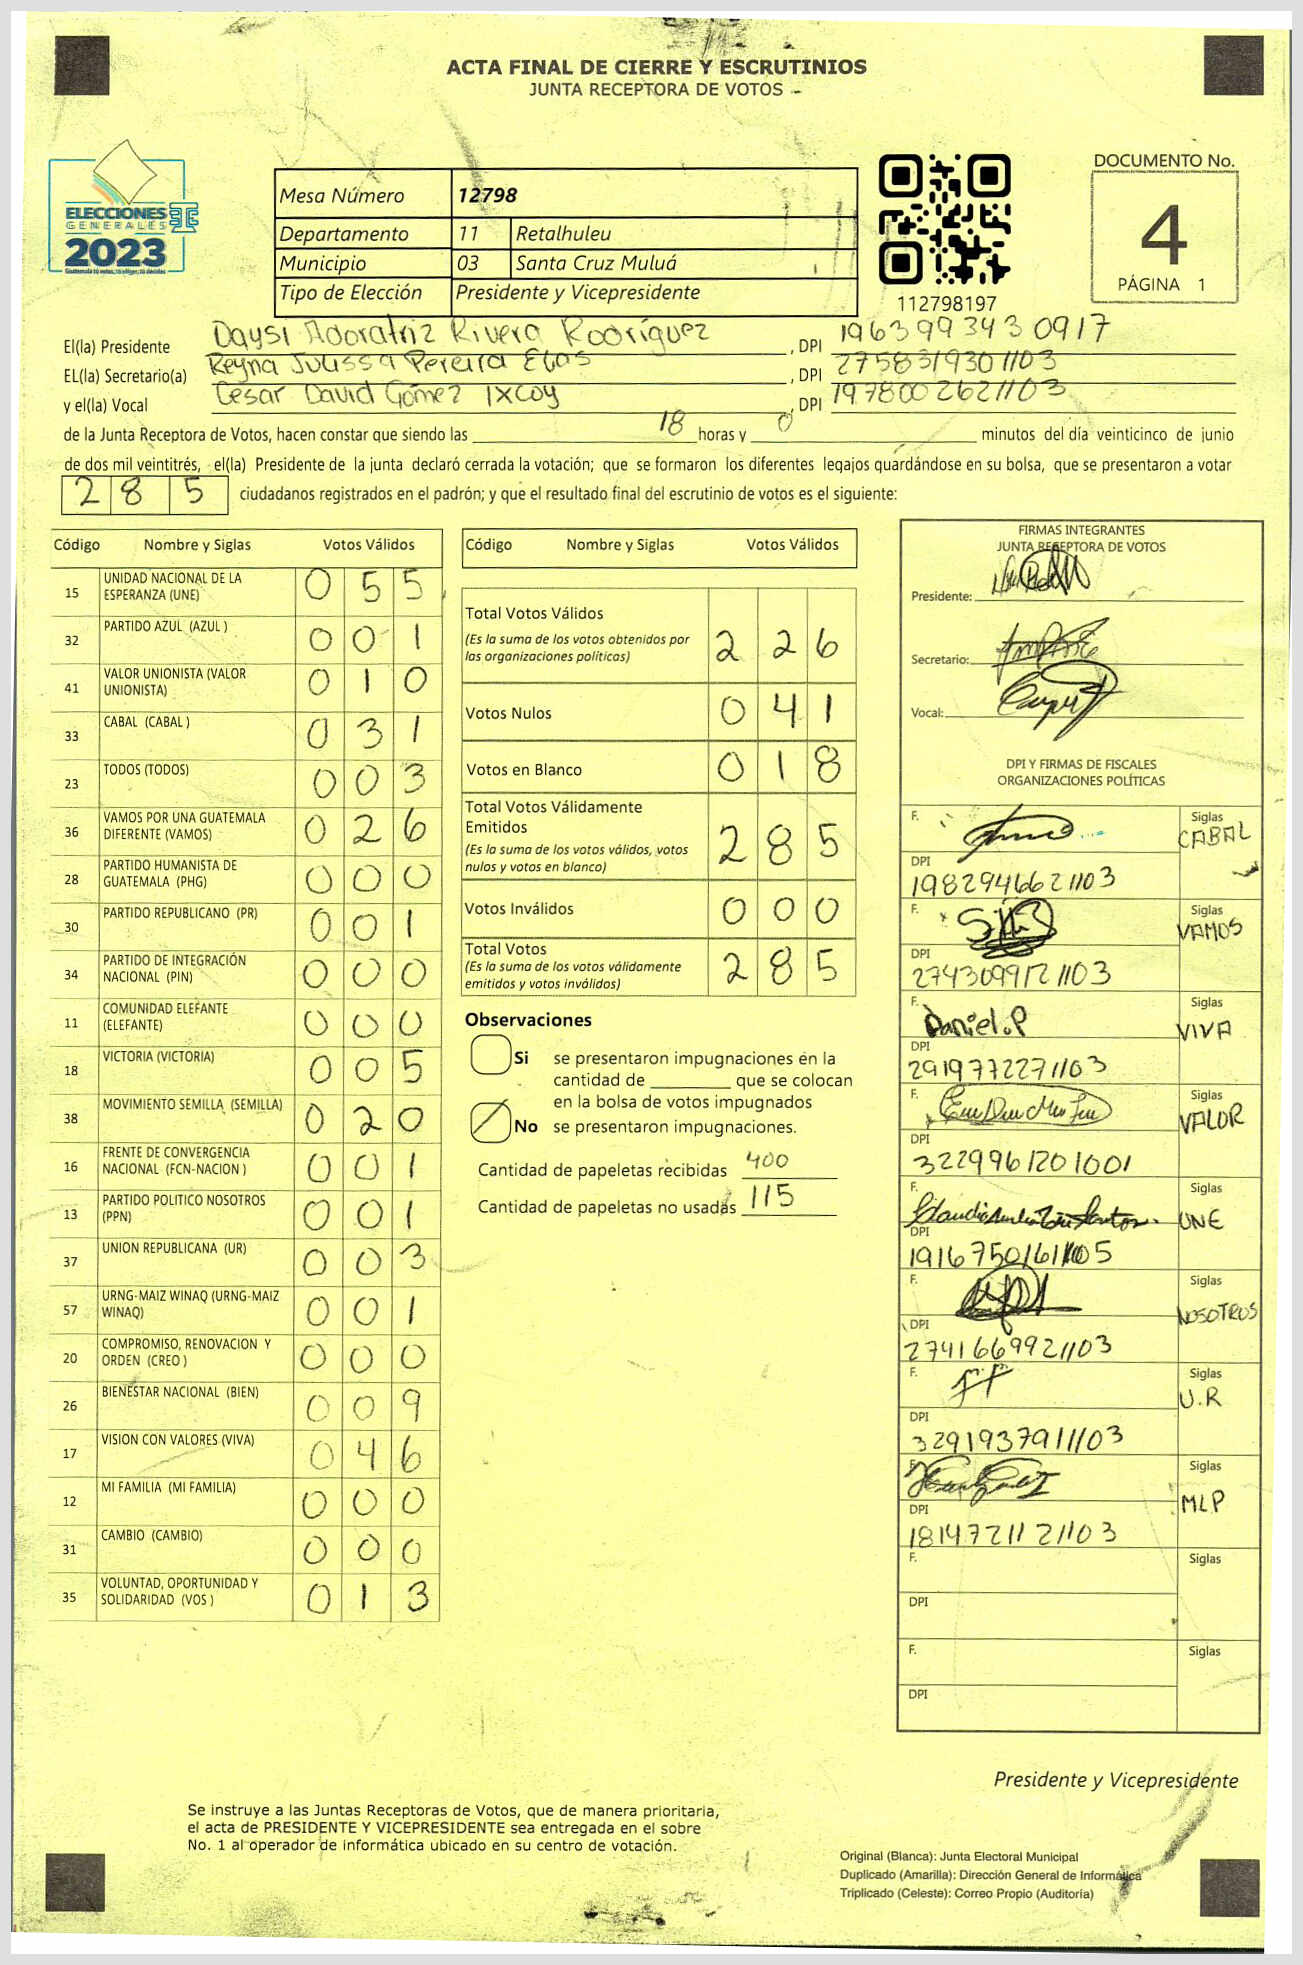 ACTA FINAL DE CIERRE Y ESCRUTINIOS
JUNTA RECEPTORA DE VOTOS
ELECCIONES
GENERALES
2023
Guatemala tú votas, tú eliges, tú decides
Mesa Número 12798
Departamento 11 Retalhuleu
Municipio 03 Santa Cruz Muluá
Tipo de Elección Presidente y Vicepresidente
112798197
DOCUMENTO No.
4
PÁGINA 1
El(la) Presidente Daysi Adoratriz Rivera Rodríguez, DPI 1963993430917
EL(la) Secretario(a) Reyna Julissa Pereira Elías, DPI 2758319301103
y el(la) Vocal Cesar David Gómez Ixcoy, DPI 1978002621103
de la Junta Receptora de Votos, hacen constar que siendo las 18 horas y 0 minutos del día veinticinco de junio
de dos mil veintitrés, el(la) Presidente de la junta declaró cerrada la votación; que se formaron los diferentes legajos quardándose en su bolsa, que se presentaron a votar
285 ciudadanos registrados en el padrón; y que el resultado final del escrutinio de votos es el siguiente:
Código Nombre y Siglas Votos Válidos
15 UNIDAD NACIONAL DE LA ESPERANZA (UNE) 055
32 PARTIDO AZUL (AZUL ) 001
41 VALOR UNIONISTA (VALOR UNIONISTA) 010
33 CABAL (CABAL ) 031
23 TODOS (TODOS) 003
36 VAMOS POR UNA GUATEMALA DIFERENTE (VAMOS) 026
28 PARTIDO HUMANISTA DE GUATEMALA (PHG) 000
30 PARTIDO REPUBLICANO (PR) 001
34 PARTIDO DE INTEGRACIÓN NACIONAL (PIN) 000
11 COMUNIDAD ELEFANTE (ELEFANTE) 000
18 VICTORIA (VICTORIA) 005
38 MOVIMIENTO SEMILLA (SEMILLA) 020
16 FRENTE DE CONVERGENCIA NACIONAL (FCN-NACION ) 001
13 PARTIDO POLITICO NOSOTROS (PPN) 001
37 UNION REPUBLICANA (UR) 003
57 URNG-MAIZ WINAQ (URNG-MAIZ WINAQ) 001
20 COMPROMISO, RENOVACION Y ORDEN (CREO ) 000
26 BIENESTAR NACIONAL (BIEN) 009
17 VISION CON VALORES (VIVA) 046
12 MI FAMILIA (MI FAMILIA) 000
31 CAMBIO (CAMBIO) 000
35 VOLUNTAD, OPORTUNIDAD Y SOLIDARIDAD (VOS ) 013
Código Nombre y Siglas Votos Válidos
Total Votos Válidos 226
(Es la suma de los votos obtenidos por
las organizaciones políticas)
Votos Nulos 041
Votos en Blanco 018
Total Votos Válidamente
Emitidos 285
(Es la suma de los votos válidos, votos
nulos y votos en blanco)
Votos Inválidos 000
Total Votos 285
(Es la suma de los votos válidamente
emitidos y votos inválidos)
Observaciones
Si se presentaron impugnaciones en la
cantidad de ________ que se colocan
en la bolsa de votos impugnados
No se presentaron impugnaciones.
Cantidad de papeletas recibidas 400
Cantidad de papeletas no usadas 115
FIRMAS INTEGRANTES
JUNTA RECEPTORA DE VOTOS
Presidente:
Secretario:
Vocal:
DPI Y FIRMAS DE FISCALES
ORGANIZACIONES POLÍTICAS
F. Siglas CABAL
DPI 1982946621103
F. Siglas VAMOS
DPI 2743099121103
F. Daniel.P Siglas VIVA
DPI 2919772271103
F. Siglas VALOR
DPI 3229961201001
F. Siglas UNE
DPI
F. Siglas NOSOTROS
DPI 2741669921103
F. Siglas U.R
DPI 3291937911103
F. Siglas MLP
DPI 1814721121103
F. Siglas
DPI
F. Siglas
DPI
Presidente y Vicepresidente
Se instruye a las Juntas Receptoras de Votos, que de manera prioritaria,
el acta de PRESIDENTE Y VICEPRESIDENTE sea entregada en el sobre
No. 1 al operador de informática ubicado en su centro de votación.
Original (Blanca): Junta Electoral Municipal
Duplicado (Amarilla): Dirección General de Informática
Triplicado (Celeste): Correo Propio (Auditoría)